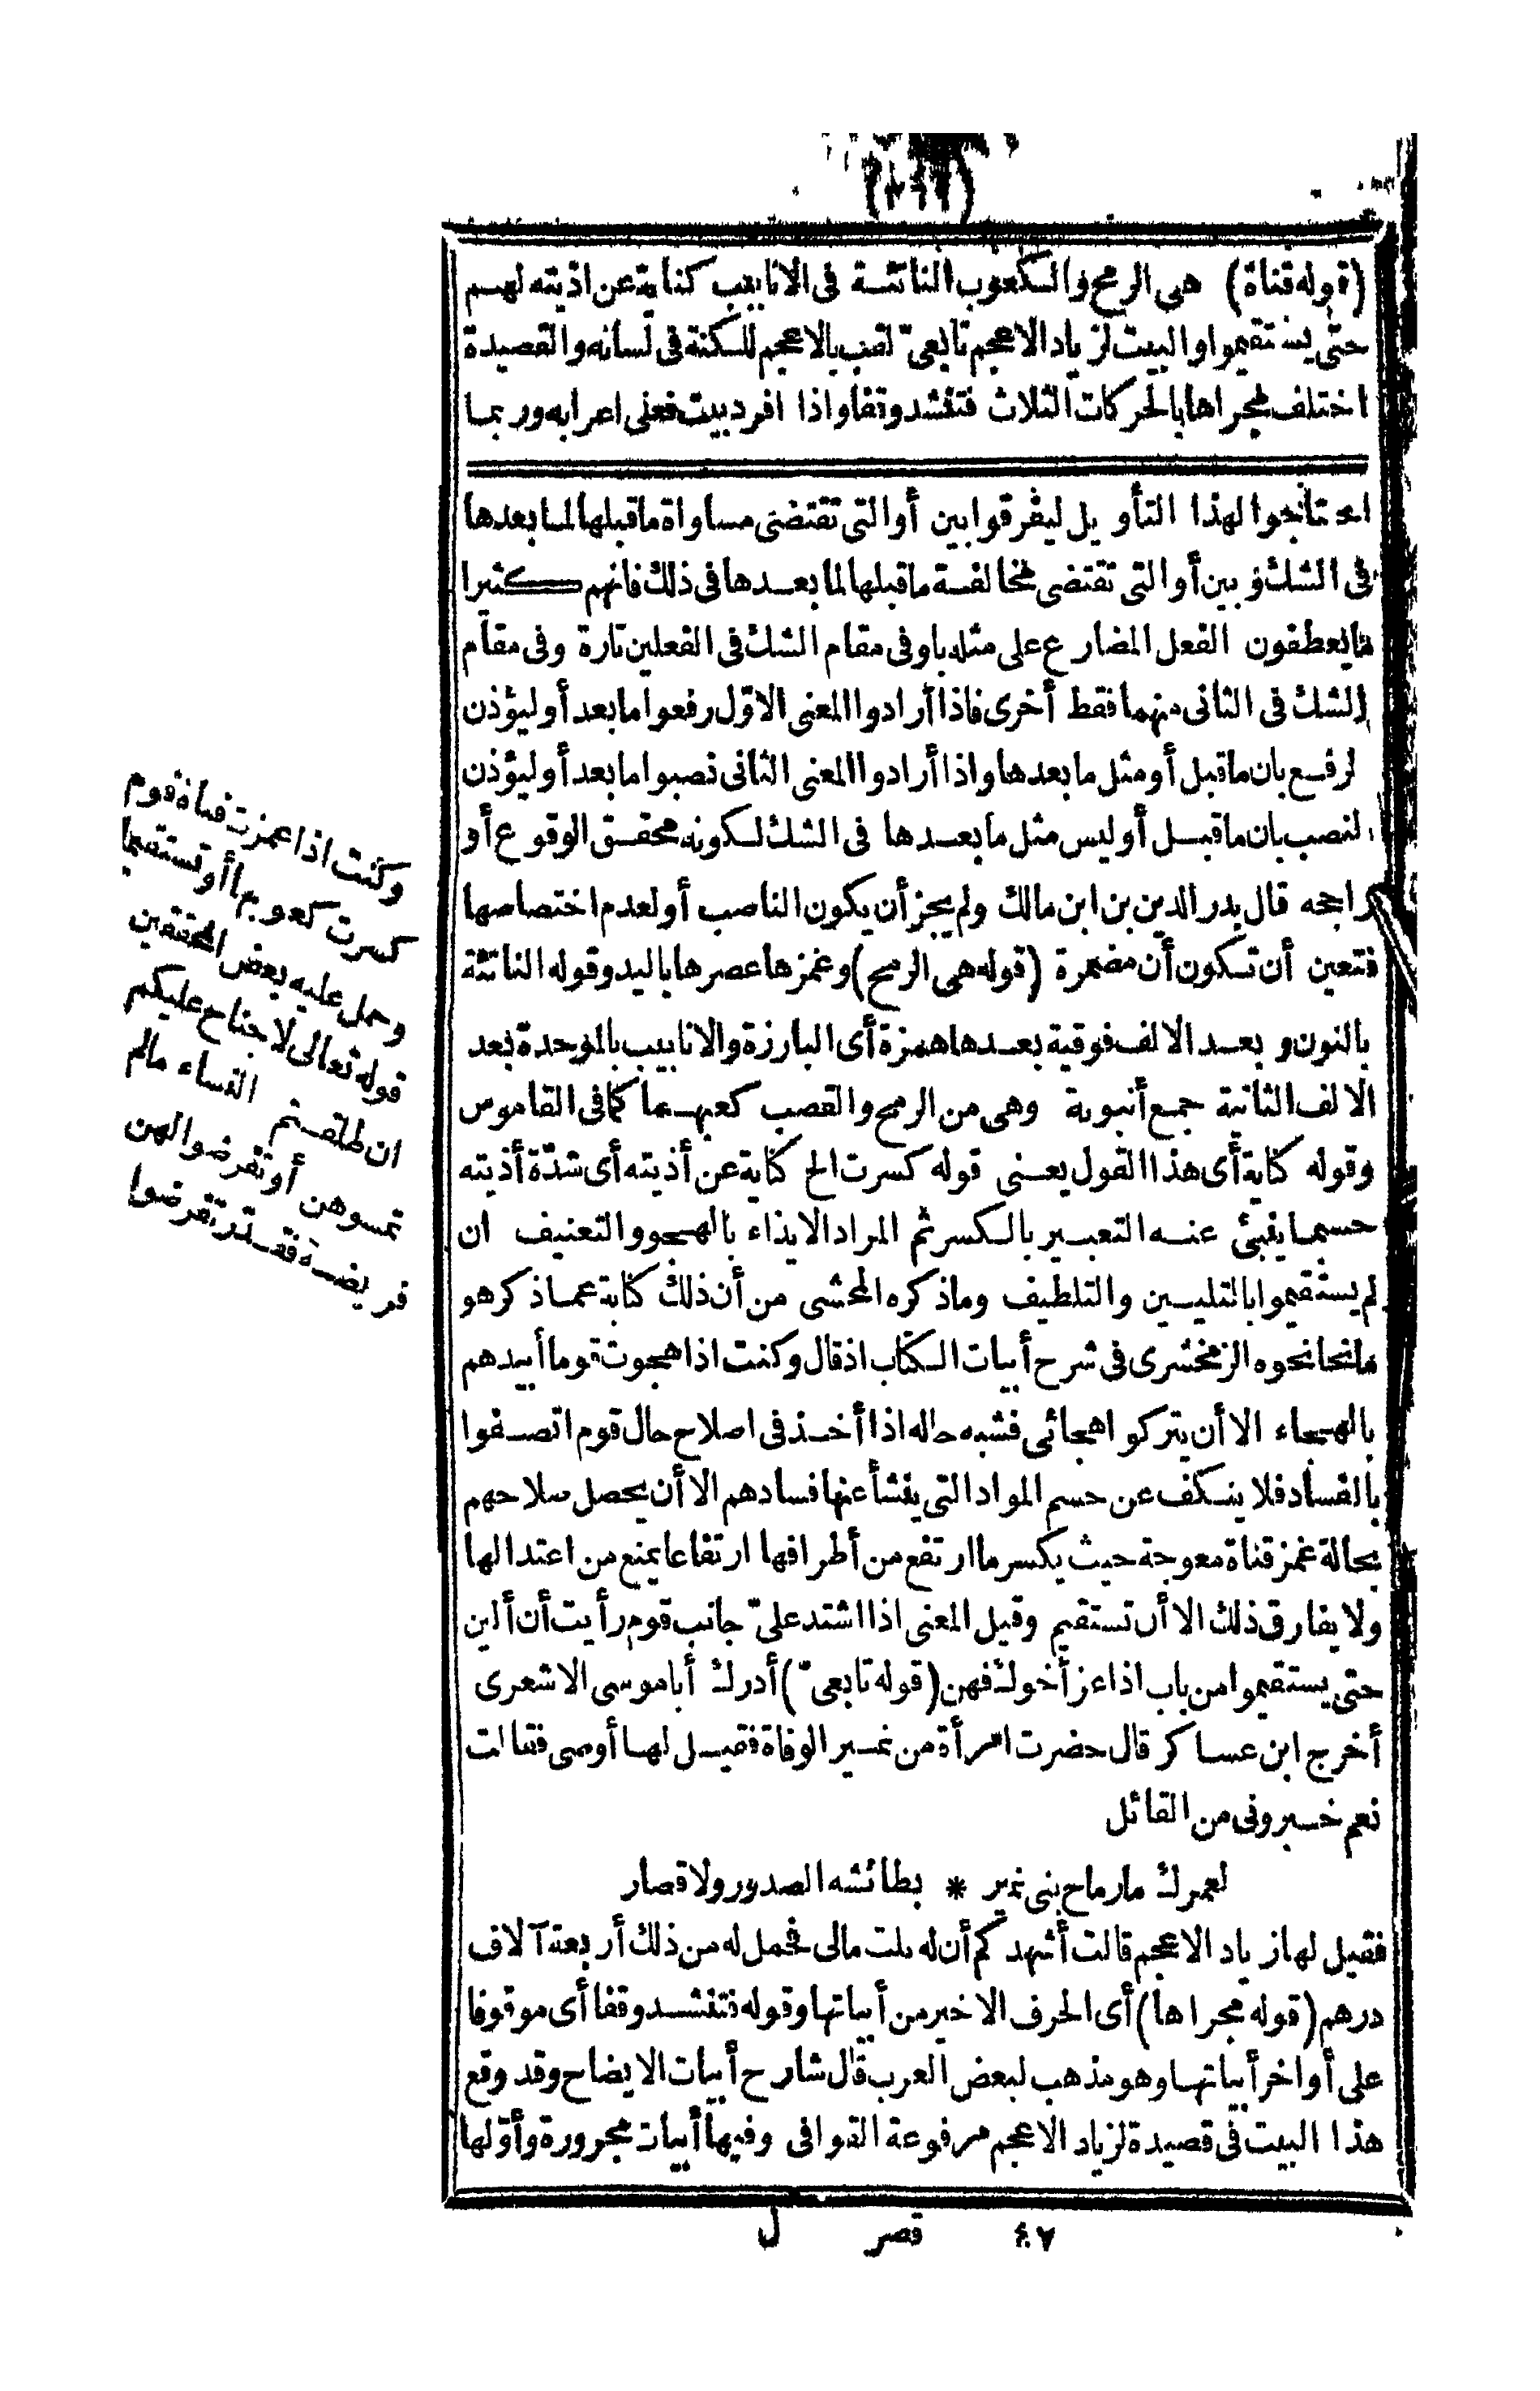 (قوله قناة) هى الرمح والكعوب الناتئة فى الانابيب كناية عن اذيته لهم
حتى يستقيموا والبيت لزياد الاعجم تابعىّ لقب بالاعجم للكنة فى لسانه والقصيدة
اختلف مجراها بالحركات الثلاث فتنشد وقفا واذا افرد بيت فعلى اعرابه وربما
احتاجوا لهذا التأويل ليفرقوا بين أو التى تقتضى مساواة ماقبلها لما بعدها
فى الشك وبين أو التى تقتضى مخالفة ماقبلها لما بعدها فى ذلك فانهم كثيرا
مايعطفون الفعل المضارع على مثله باو فى مقام الشك فى الفعلين تارة وفى مقام
الشك فى الثانى منهما فقط أخرى فاذا أرادوا المعنى الاوّل رفعوا مابعد أو ليؤذن
لرفع بان ماقبل أو مثل مابعدها واذا أرادوا المعنى الثانى نصبوا مابعد أو ليؤذن
لنصب بان ماقبل أو ليس مثل مابعدها فى الشك لكونه محقق الوقوع أو
راجحه قال بدر الدين بن ابن مالك ولم يجز أن يكون الناصب أو لعدم اختصاصها
فتعين أن تكون أن مضمرة (قوله هى الرمح) وغمزها عصرها باليد وقوله الناتئة
بالنون وبعد الالف فوقية بعدها همزة أى البارزة والانابيب بالموحدة بعد
الالف الثانية جمع أنبوبة وهى من الرمح والقصب كعبهما كما فى القاموس
وقوله كناية أى هذا القول يعنى قوله كسرت الخ كناية عن أذيته أى شدّة أذيته
حسبما ينبئ عنه التعبير بالكسر ثم المراد الايذاء بالهجو والتعنيف ان
لم يستقيموا بالتليين والتلطيف وماذكره المحشى من أن ذلك كناية عماذكر هو
مانحا نحوه الزمخشرى فى شرح أبيات الكتاب اذ قال وكنت اذا هجوت قوما أبيدهم
بالهجاء الا أن يتركوا هجائى فشبه حاله اذا أخذ فى اصلاح حال قوم اتصفوا
بالفساد فلا ينكف عن حسم المواد التى ينشأ عنها فسادهم الا أن يحصل صلاحهم
بحالة غمز قناة معوجة حيث يكسر ماارتفع من أطرافها ارتفاعا يمنع من اعتدالها
ولا يفارق ذلك الا أن تستقيم وقيل المعنى اذا اشتد علىّ جانب قوم رأيت أن ألين
حتى يستقيموا من باب اذا عز أخوك فهن (قوله تابعىّ) أدرك أبا موسى الاشعرى
أخرج ابن عساكر قال حضرت امرأة من نمير الوفاة فقيل لها أوصى فقالت
نعم خبرونى من القائل
لعمرك مارماح بنى نمير * بطائشه الصدور ولا قصار
فقيل لها زياد الاعجم قالت أشهدكم أن له ثلث مالى فحمل له من ذلك أربعة آلاف
درهم (قوله مجراها) أى الحرف الاخير من أبياتها وقوله فتنشد وقفا أى موقوفا
على أواخر أبياتها وهو مذهب لبعض العرب قال شارح أبيات الايضاح وقد وقع
هذا البيت فى قصيدة لزياد الاعجم مرفوعة القوافى وفيها أبيات مجرورة وأوّلها
٤٧ قصر ل
وكنت اذا غمزت قناة قوم
كسرت كعوبها أو تستقيما
وحمل عليه بعض المحققين
قوله تعالى لا جناح عليكم
ان طلقتم النساء مالم
تمسوهن أو تفرضوا لهن
فريضة فقدّر تفرضوا